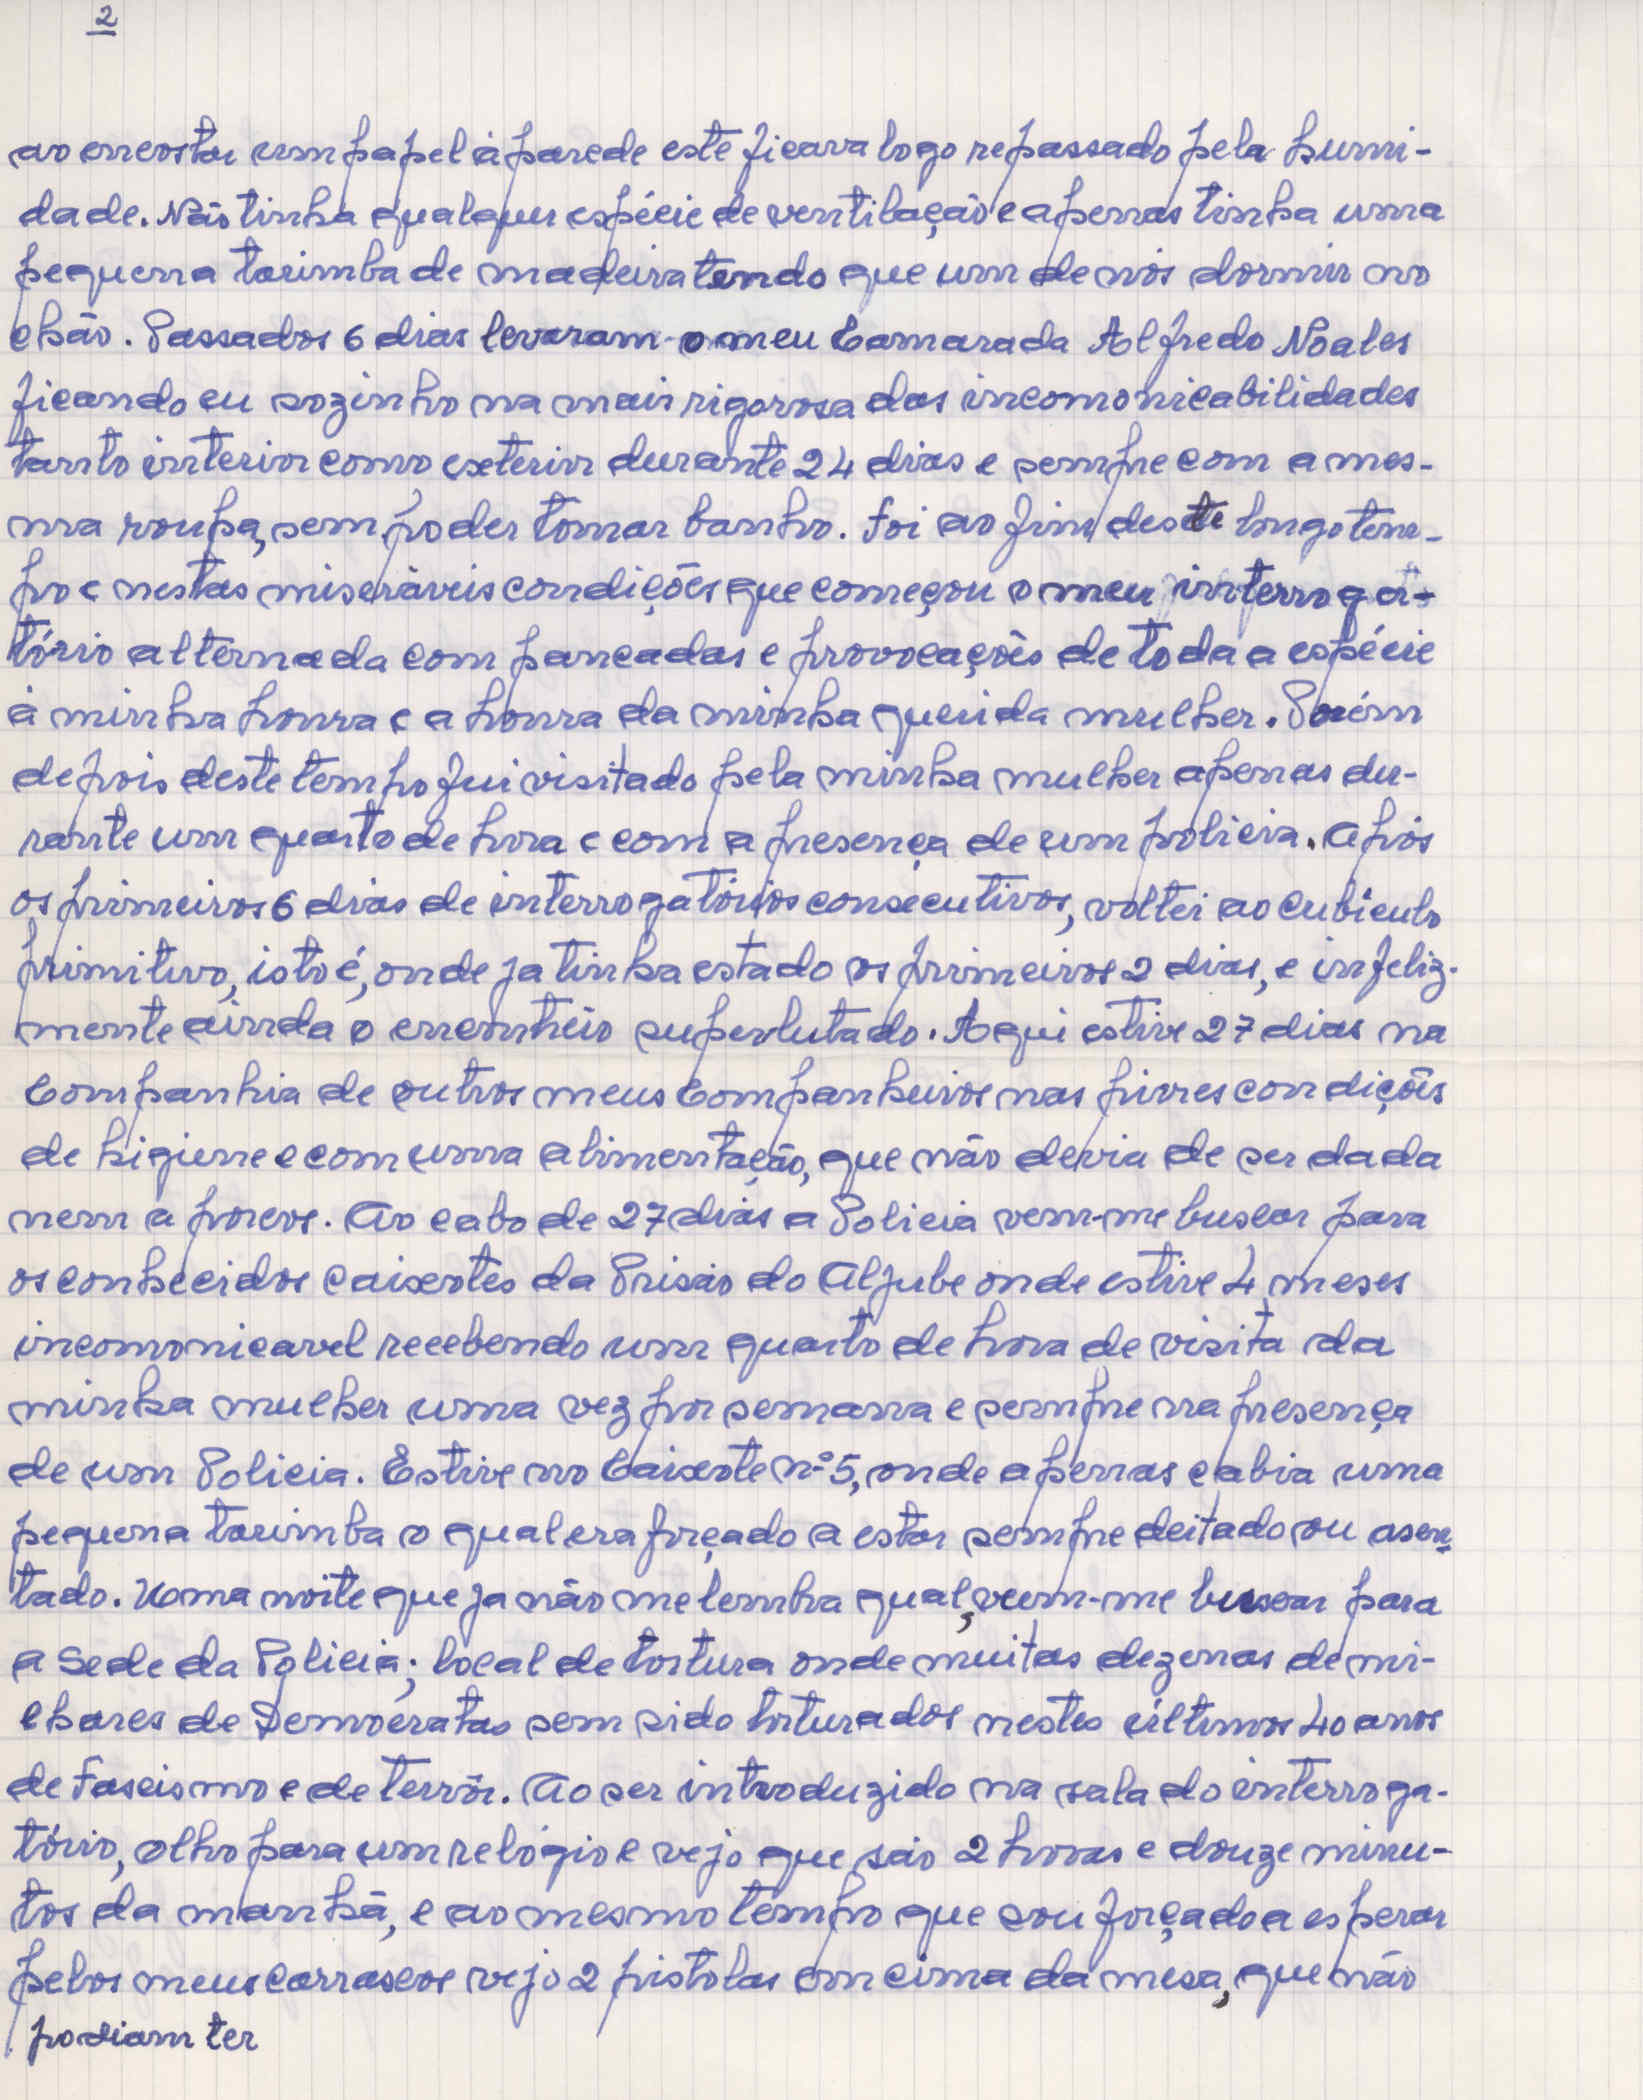 2
ao encostar um papel à parede este ficava logo repassado pela humi-
dade. Não tinha qualquer espécie de ventilação e apenas tinha uma
pequena tarimba de madeira tendo que um de nós dormir no
chão. Passados 6 dias levaram o meu Camarada Alfredo Noales
ficando eu sozinho na mais rigorosa das incomonicabilidades
tanto interior como exterior durante 24 dias e sempre com a mes-
ma roupa, sem poder tomar banho. Foi ao fim deste longo tem-
po e nestas miseràveis condições que começou o meu interroga-
tório alternada com pancadas e provocações de toda a espécie
à minha honra e a honra da minha querida mulher. Porém
depois deste tempo fui visitado pela minha mulher apenas du-
rante um quarto de hora e com a presença de um policia. Após
os primeiros 6 dias de interrogatórios consecutivos, voltei ao cubiculo
primitivo, isto é, onde ja tinha estado os primeiros 2 dias, e infeliz-
mente ainda o encontrei superlutado. Aqui estive 27 dias na
Companhia de outros meus Companheiros nas piores condições
de higiene e com uma alimentação, que não devia de ser dada
nem a porcos. Ao cabo de 27 dias a Policia vem-me buscar para
os conhecidos caixotes da Prisão do Aljube onde estive 4 meses
incomonicavel recebendo um quarto de hora de visita da
minha mulher uma vez por semana e sempre na presença
de um Policia. Estive no Caixote nº 5, onde apenas cabia uma
pequena tarimba o qual era forçado a estar sempre deitado ou asen-
tado. Uma noite que ja não me lembra qual, veem-me buscar para
a Sede da Policia; local de tortura onde muitas dezenas de mi-
lhares de Democratas sem sido torturados nestes últimos 40 anos
de Fascismo e de terrôr. Ao ser introduzido na sala do interroga-
tório, olho para um relógio e vejo que são 2 horas e douze minu-
tos da manhã, e ao mesmo tempo que sou forçado a esperar
pelos meus carrascos vejo 2 pistolas em cima da mesa, que não
podiam ter